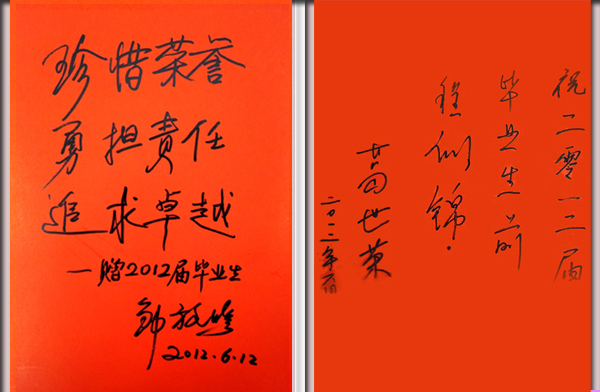 珍惜荣誉
勇担责任
追求卓越
—赠2012届毕业生
邹放鸣
2012.6.12
祝二零一二届
毕业生前
程似锦.
葛世荣
二〇一二年六月